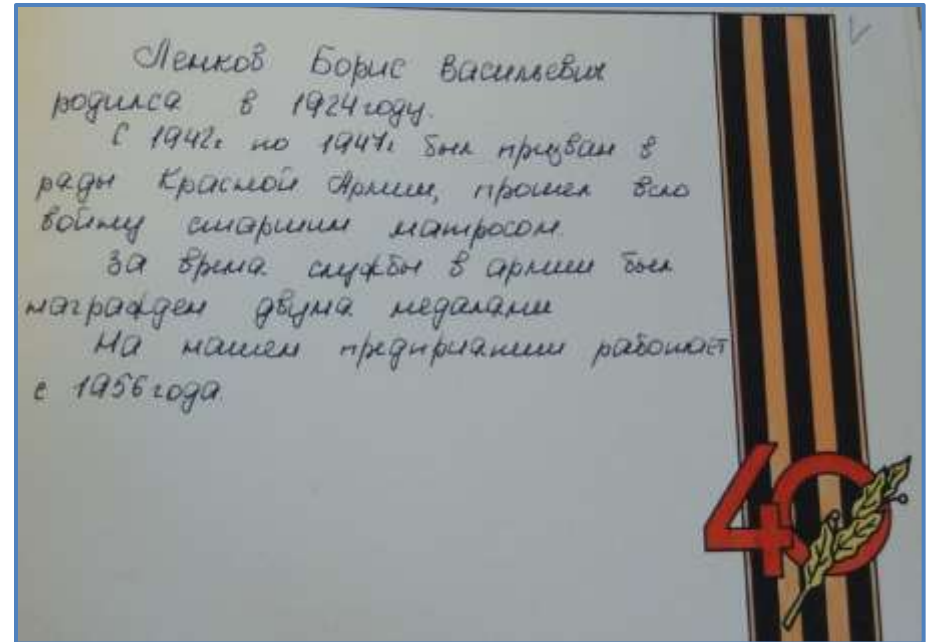 Ленков Борис Васильевич
родился в 1924 году.
С 1942г по 1947г был призван в
ряды Красной Армии, прошел всю
войну старшим матросом.
За время службы в армии был
награжден двумя медалями
На нашем предприятии работает
с 1956 года.
40